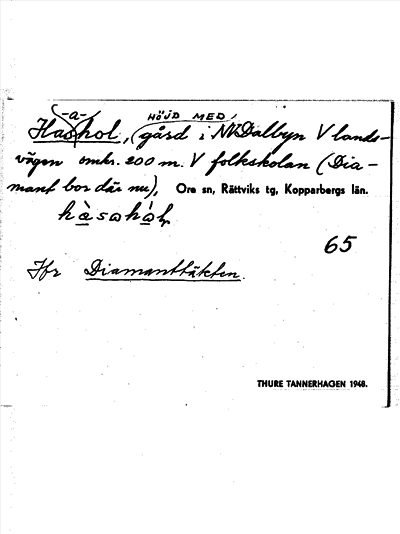 -a- HÖJD MED
Hashol, (gård i NV Dalbyn V lands-
vägen omkr. 200 m. V folkskolan (Dia-
mant bor där nu), Ore sn, Rättviks tg, Kopparbergs län.
65
Jfr Diamanttäkten.
THURE TANNERHAGEN 1948.